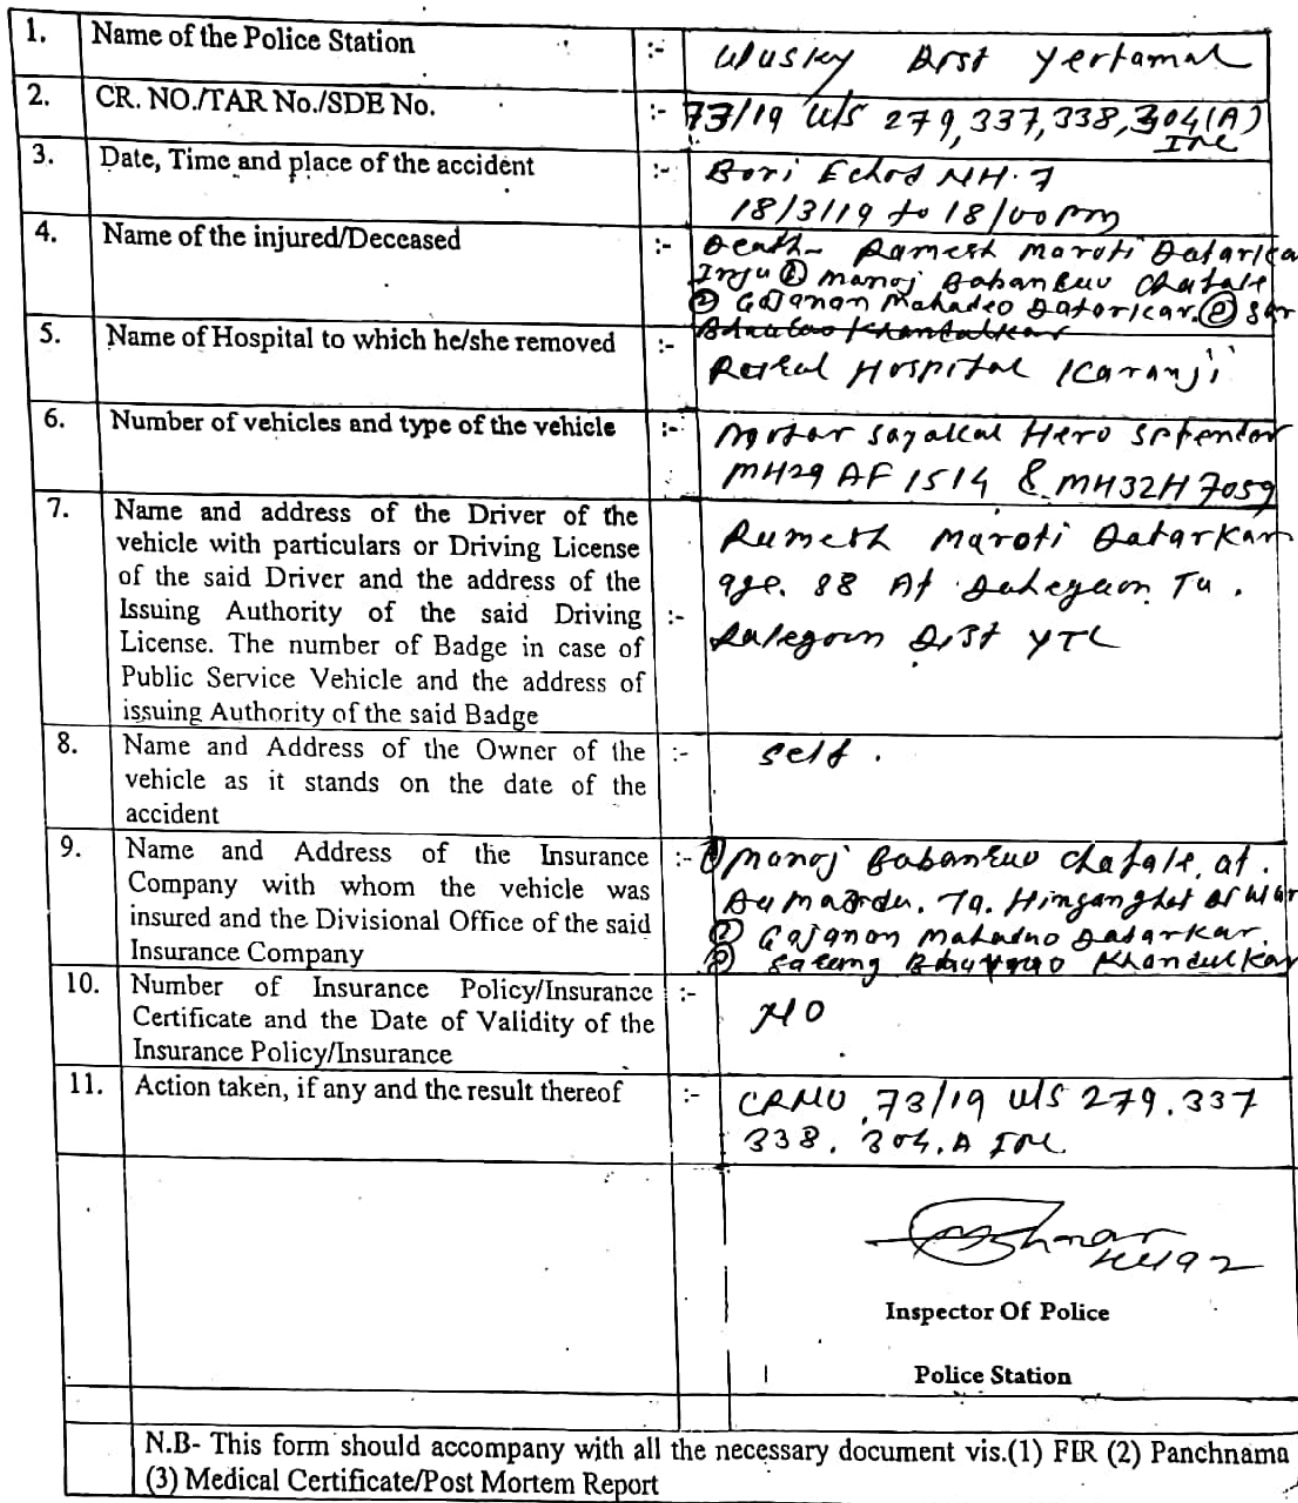 1. Name of the Police Station :- Dist Yertamal
2. CR. NO./TAR No./SDE No. :- 73/19 u/s 279,337,338,304(A)
3. Date, Time and place of the accident :- Bori Echod NH.7
18/3/19 to 18/00 pm
4. Name of the injured/Deceased :- Death- Ramesh Maroti Datarka
Inju ① Manoj Chafale
② Gajanan Mahadeo Datorkar.
5. Name of Hospital to which he/she removed :-
Hospital Karanji
6. Number of vehicles and type of the vehicle :- Motar sayakal Hero
MH29 AF 1514 & MH32H 7059
7. Name and address of the Driver of the
vehicle with particulars or Driving License
of the said Driver and the address of the
Issuing Authority of the said Driving :-
License. The number of Badge in case of
Public Service Vehicle and the address of
issuing Authority of the said Badge
Rumesh Maroti Datarkar
age. At Dahegaon Ta.
Ralegoun Dist YTL
8. Name and Address of the Owner of the :- self.
vehicle as it stands on the date of the
accident
9. Name and Address of the Insurance :-
Company with whom the vehicle was
insured and the Divisional Office of the said
Insurance Company
① Manoj Chafale, at.
Ta. Hinganghat
② Gajanan Datarkar.
Khandulkar
10. Number of Insurance Policy/Insurance :- NO
Certificate and the Date of Validity of the
Insurance Policy/Insurance
11. Action taken, if any and the result thereof :- CRNO. 73/19 u/s 279.337
338. 304.A
Inspector Of Police
Police Station
N.B- This form should accompany with all the necessary document vis.(1) FIR (2) Panchnama
(3) Medical Certificate/Post Mortem Report